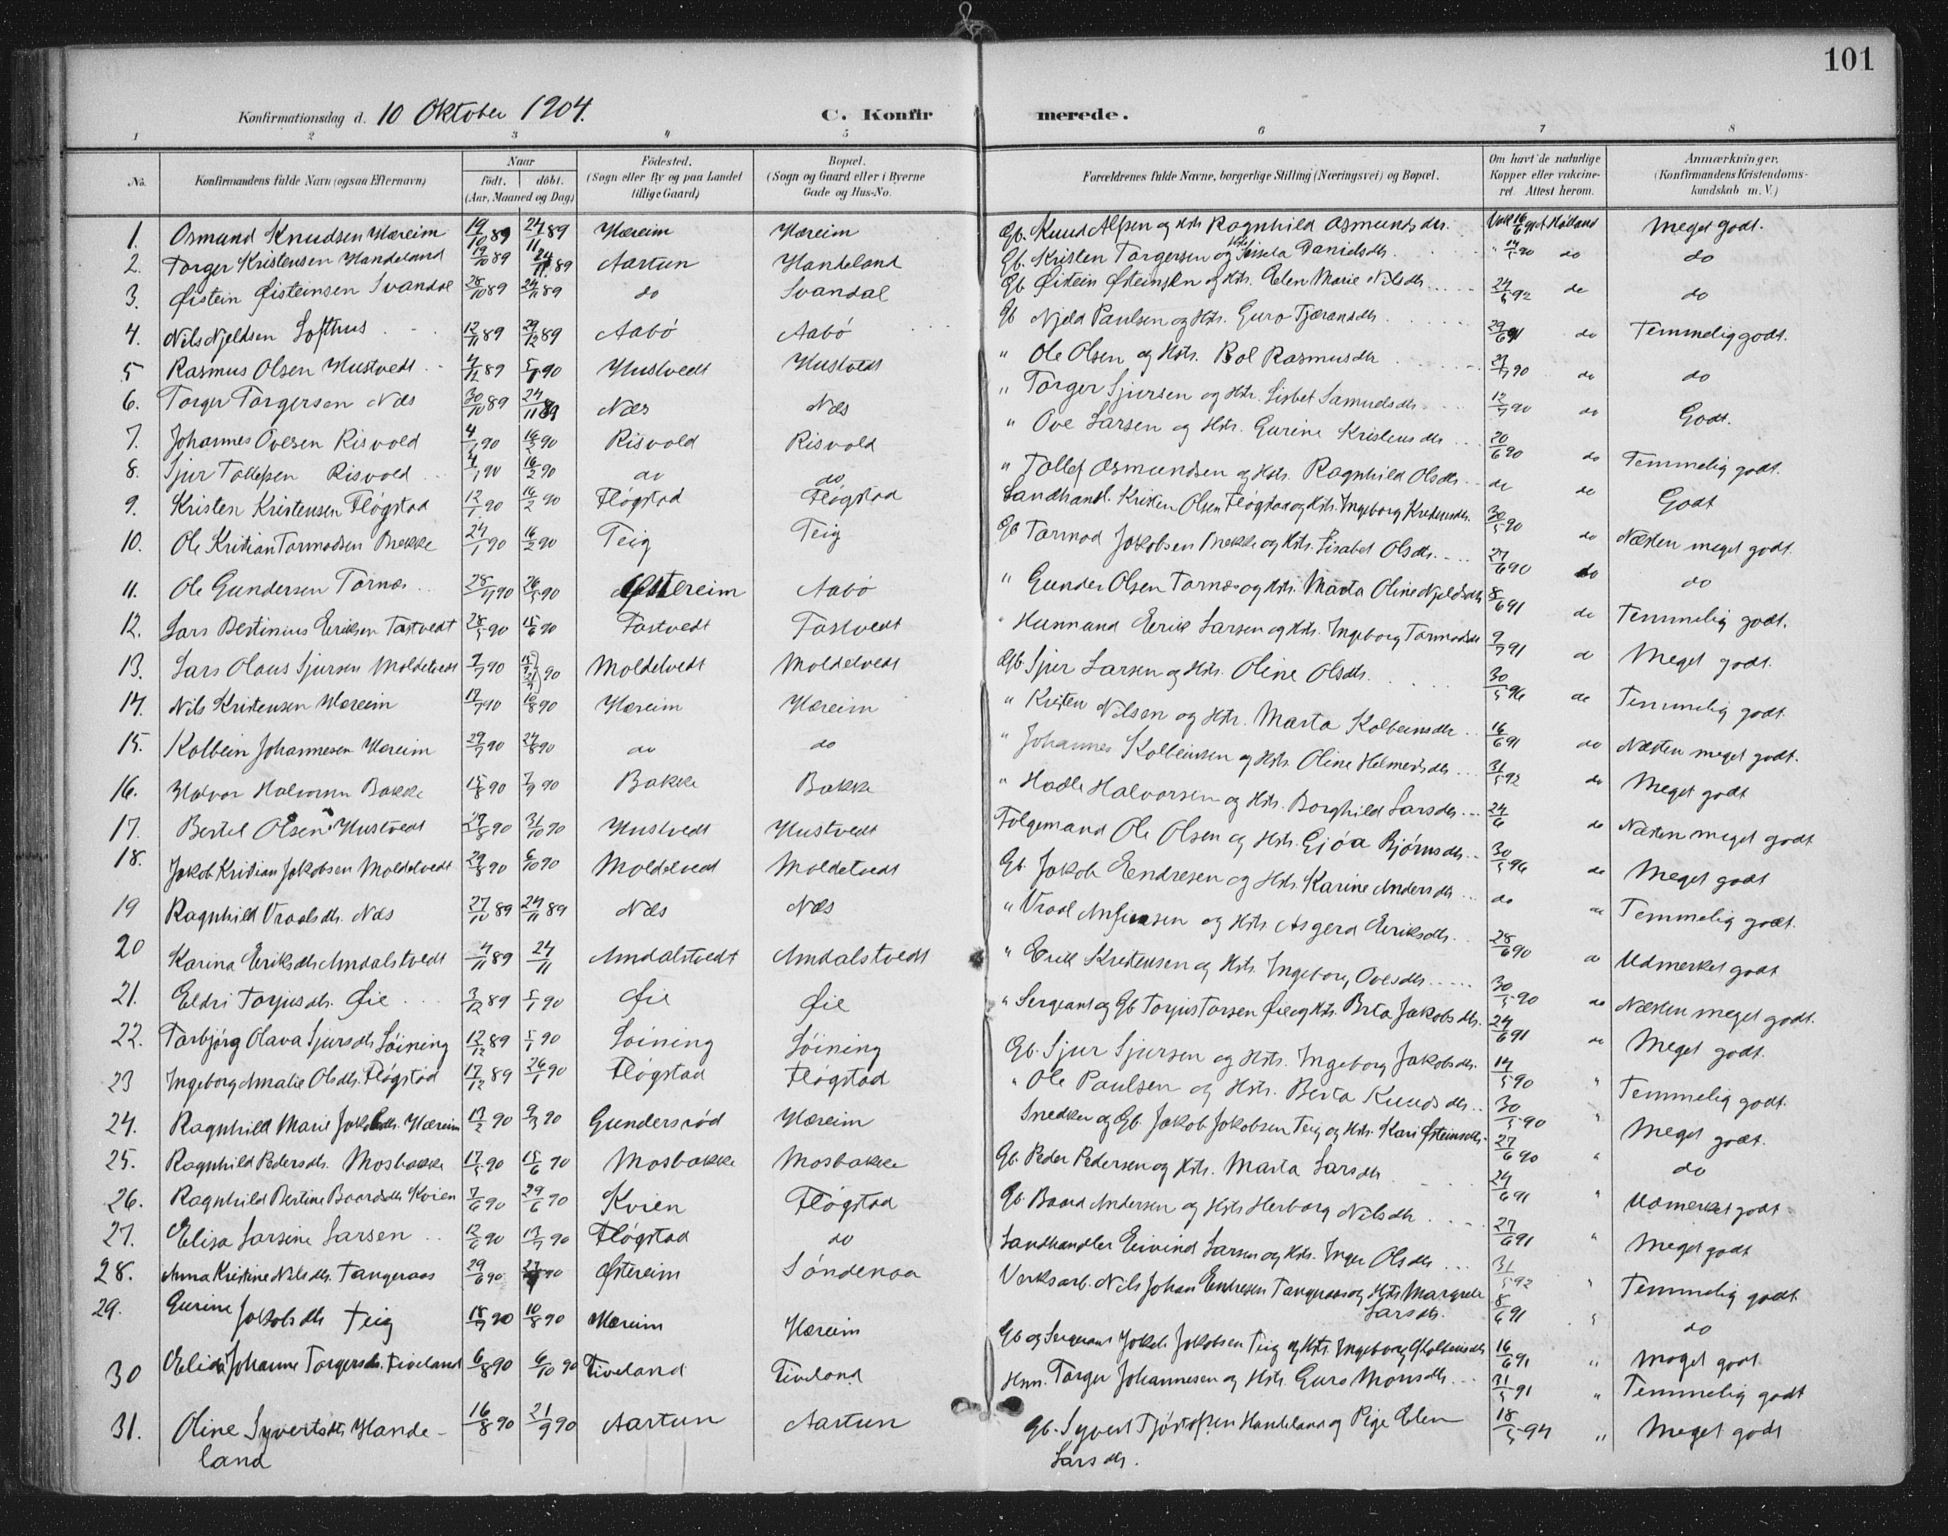 101
Konfirmationsdag d. 10 Oktober 1904. C. Konfirmerede.
1 2 3 4 5 6 7 8
No. Konfirmandens fulde Navn (ogsaa Efternavn) Naar födt. döbt. (Aar, Maaned og Dag) Födested. (Sogn eller By og paa Landet tillige Gaard) Bopæl. (Sogn og Gaard eller i Byerne Gade og Hus-No. Forældrenes fulde Navne, borgerlige Stilling (Næringsvei) og Bopæl. Om havt de naturlige Kopper eller vakcineret. Attest herom. Anmærkninger. (Konfirmandens Kristendomskundskab m. V.)
1. Osmund Knudsen Hæreim 19/10 89 24/11 89 Hæreim Hæreim Gb. Knud Alfsen og Hstr. Ragnhild Osmundsdtr. Meget godt.
2. Torger Kristensen Handeland 19/10 89 24/11 89 Aartun Handeland Gb. Kristen Torgersen og Hstr. Sissela Danielsdtr. 14/5 90 do do
3. Øistein Øisteinsen Svandal 28/10 89 24/11 89 do Svandal Gb Øistein Østeinsen og Hstr. Elen Marie Nilsdtr. 24/5 92 do do
4. Nils Njeldsen Lofthus 12/11 89 29/12 89 Aabö Aabö Gb Njeld Paulsen og Hstr. Guro Tjæransdtr. 29/6 91 do Temmelig godt.
5 Rasmus Olsen Hustvedt 4/12 89 5/1 90 Hustvedt Hustvedt " Ole Olsen og Hstr. Bol Rasmusdtr do do
6. Torger Torgersen Næs 30/10 89 24/11 89 Næs Næs " Torger Sjursen og Hstr. Lisbet Samuelsdtr. do Godt.
7. Johannes Ovesen Risvold 90 16/2 90 Risvold Risvold " Ove Larsen og Hstr. Gurine Kristensdtr 20/6 90 do Temmelig godt.
8. Sjur Tollefsen Risvold 90 16/2 90 do do " Tollef Osmundsen og Hstr. Ragnhild Olsdtr. do do Godt
9. Kristen Kristensen Flógstad 12/1 90 16/2 90 Flógstad Flógstad Landhandl. Kristen Olsen Flógstad og Hstr. Ingeborg 30/5 90 do Næsten meget godt.
10. Ole Kristian Tormodsen Brekke 24/1 90 16/2 90 Teig Teig Gb Tormod Jakobsen Brekke og Hstr. Lisabet Olsdtr. 27/6 90 do do
11. Ole Gundersen Tornes 28/4 90 26/5 90 Østereim Aabö " Gunder Olsen Tornes og Hstr. Marta Oline Njeldsdtr 8/6 91 do Temmelig godt.
12. Lars Bertinius Eriksen Tastvedt 28/5 90 15/6 90 Tastvedt Tastvedt " Husmand Erik Larsen og Hstr. Ingeborg Tormodsdtr 9/7 91 do Meget godt.
13. Lars Olaus Sjursen Moldetvedt 7/7 90 90 Moldetvedt Moldetvedt Gb. Sjur Larsen og Hstr. Oline Olsdtr. 30/5 96 do Temmelig godt.
14. Nils Kristensen Hæreim 17/7 90 10/8 90 Hæreim Hæreim " Kristen Nilsen og Hstr. Marta Kolbeinsdtr. 16/6 91 do Næsten meget godt.
15. Kolbein Johannesen Hæreim 29/7 90 24/8 90 do do " Johannes Kolbeinsen og Hstr. Oline Helmersdtr. 31/5 92 do Meget godt
16. Halvor Halvorsen Bakke 15/8 90 7/9 90 Bakke Bakke " Hadle Halvorsen og Hstr. Borghild Larsdtr. 24/6 do Næsten meget godt
17. Bertel Olsen Hustvedt 27/8 90 31/10 90 Hustvedt Hustvedt Følgemand Ole Olsen og Hstr. Gjöa Bjørnsdtr. 30/5 96 do Meget godt
18. Jakob Kristian Jakobsen Moldetvedt 29/8 90 6/10 90 Moldetvedt Moldetvedt Gb. Jakob Endresen og Hstr. Karine Andersdtr. do do Temmelig godt.
19 Ragnhild Vraalsdtr. Næs 27/10 89 24/11 89 Næs Næs " Vraal Anfinsen og Hstr. Asgerd Eriksdtr. 28/6 90 do Udmerket godt
20 Karina Eriksdtr. Amdalstvedt 4/11 89 24/11 Amdalstvedt Amdalstvedt " Erik Kristensen og Hstr. Ingeborg Ovesdtr. 30/5 90 do Næsten meget godt.
21. Eldri Torjusdtr. Øie 3/12 89 5/1 90 Øie Øie " Sergeant og Gb Torjus Torsen Øie og Hstr. Brta Jakobsdtr. 24/6 91 do Meget godt.
22. Torbjørg Olava Sjursdtr. Löining 12/12 89 5/1 90 Löining Löining Gb. Sjur Sjursen og Hstr. Ingeborg Jakobsdtr. 14/5 90 " Temmelig godt.
23 Ingeborg Amalie Olsdtr. Flógstad 17/12 89 26/1 90 Flógstad Flógstad " Ole Paulsen og Hstr. Berta Knudsdtr. 30/5 90 " Meget godt.
24. Ragnhild Marie Jakobsdtr. Hæreim 13/2 90 9/3 90 Gundersröd Hæreim Snedker og Gb. Jakob Jakobsen Teig og Hstr. Kari Østeinsdtr. 27/6 90 " do
25. Ragnhild Pedersdtr. Mosbakke 17/5 90 15/6 90 Mosbakke Mosbakke Gb. Peder Pedersen og Hstr. Marta Larsdtr 24/6 91 " Udmerket godt
26. Ragnhild Bertine Baardsdtr. Kvien 7/6 90 29/6 90 Kvien Flógstad Gb. Baard Andersen og Hstr. Herborg Nilsdtr. 27/6 91 " Meget godt
27. Elisa Larsine Larsen 12/6 90 13/7 90 Flógstad do Landhandler Eivind Larsen og Hstr. Inger Olsdtr. 31/5 92 " Temmelig godt
28. Anna Kristine Nilsdtr. Tangeraas 29/6 90 90 Østereim Söndenaa Verksarb. Nils Johan Endresen Tangeraas og Hstr. Margrete Larsdtr. 8/6 91 " do
29. Gurine Jakobsdtr. Teig 18/7 90 10/8 90 Hæreim Hæreim Gb og Sergeant Jakob Jakobsen Teig og Hstr. Ingeborg Kolbeinsdtr 16/6 91 " Meget godt.
30 Elida Johanne Torgersdtr. Tiveland 6/8 90 6/10 90 Tiveland Tiveland Hmn. Torger Johannesen og Hstr. Guro Monsdtr. 31/5 91 " Temmelig godt
31. Oline Syvertsdtr. Handeland 16/8 90 21/9 90 Aartun Aartun Gb. Syvert Handeland og Pige Elen Larsdtr. 18/5 94 " Meget godt